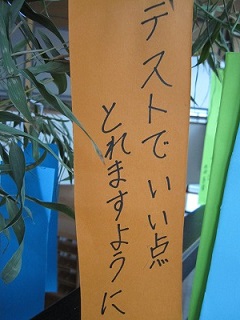 テストでいい点
とれますように